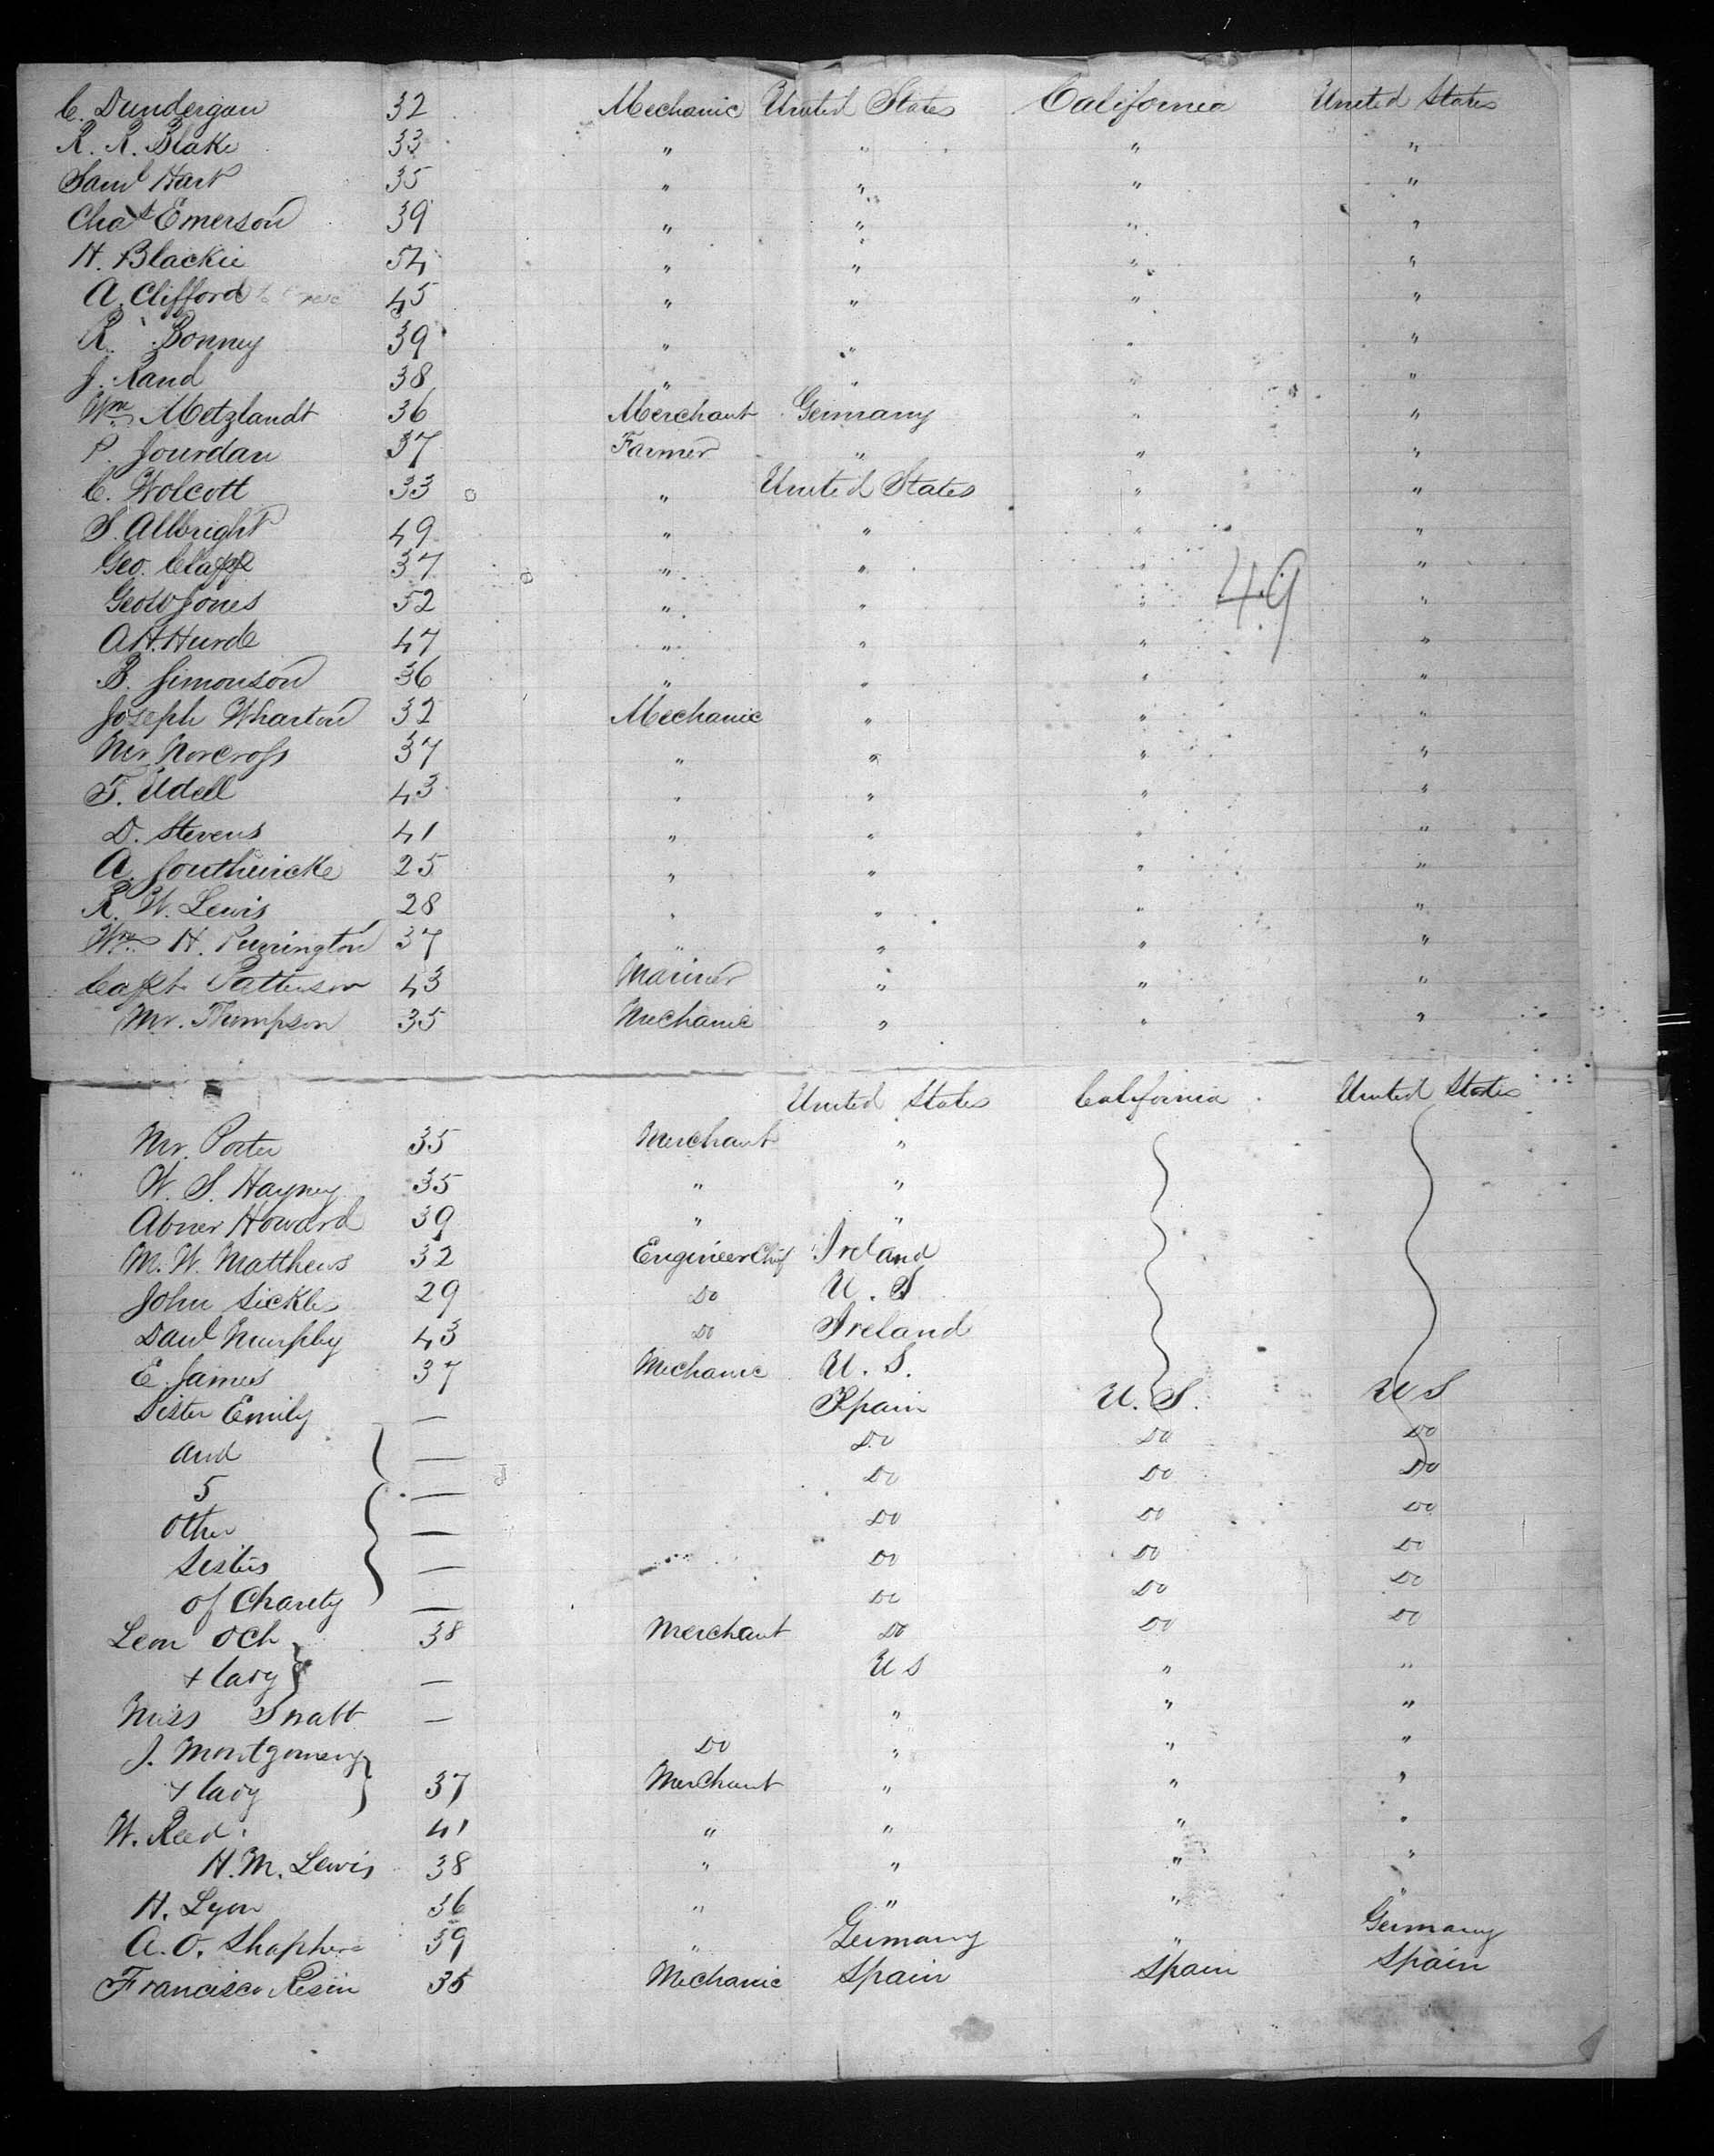 C. Dundergan 32 Mechanic United States California United States
R. R. Blake 33 " " " "
Saml Hart 35 " " " "
Chas Emerson 39 " " " "
H. Blackie 54 " " " "
A. Clifford 45 " " " "
R. Bonney 39 " " " "
J. Rand 38 " " " "
Wm Metzlandt 36 Merchant Germany " "
P. Jourdan 37 Farmer " " "
C. Wolcott 33 " United States " "
S. Allbright 49 " " " "
Geo. Clapp 37 " " " "
Geo W Jones 52 " " " "
49
A H. Hurd 47 " " " "
B. Simonson 36 " " " "
Joseph Wharton 32 Mechanic " " "
Mr Norcross 37 " " " "
F. Udell 43 " " " "
D. Stevens 41 " " " "
A. Southwicke 25 " " " "
R. W. Lewis 28 " " " "
Wm H. Purrington 37 " " " "
Capt Patterson 43 Mariner " " "
Mr. Thompson 35 Mechanic " " "
United States California United States
Mr. Porter 35 Merchant "
W. S. Hayney 35 " "
Abner Howard 39 " "
M. W. Matthews 32 Engineer Chif Ireland
John Sickles 29 Do U. S
Danl Murphy 43 Do Ireland
E. James 37 Mechanic U. S.
Sister Emily — Spain U. S. U S
and — Do Do Do
5 — Do Do Do
other — Do Do Do
Sisters — Do Do Do
of Charity — Do Do Do
Leon Och 38 Merchant Do Do Do
+ lady — U S " "
Miss — " " "
J. Montgomery Do " " "
+ lady 37 Merchant " " "
W. Reed. 41 " " " "
H. M. Lewis 38 " " " "
H. Lyon 36 " " " "
A. O. 39 " Germany " Germany
Francisco Resin 35 Mechanic Spain Spain Spain